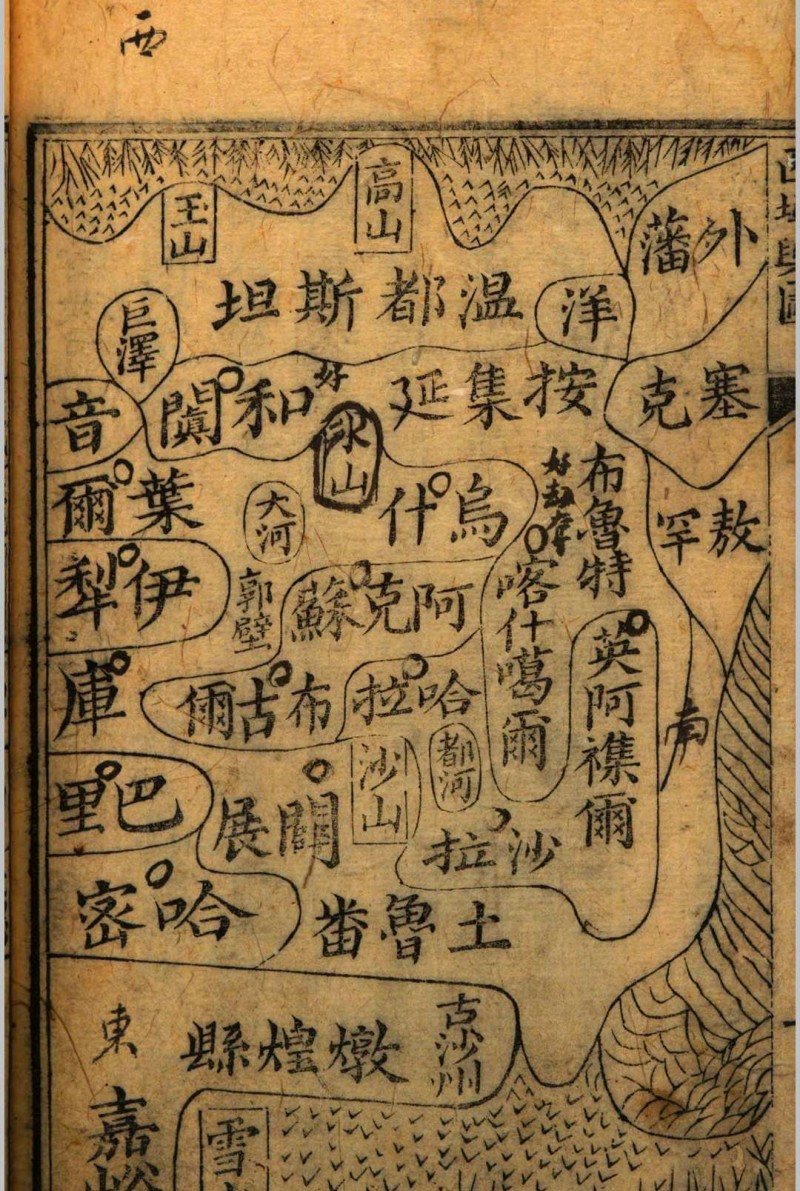 西
高山
玉山
外藩
溫都斯坦
洋
巨澤
塞克
按集延
和闐
音
氷山
布魯特
敖罕
烏什
葉爾
大河
喀什噶爾
伊犁
郭壁
阿克蘇
英阿襍爾
哈拉
布古爾
庫
南
都河
沙山
巴里
關展
沙拉
哈密
土魯番
古沙州
燉煌縣
東
嘉峪
雪